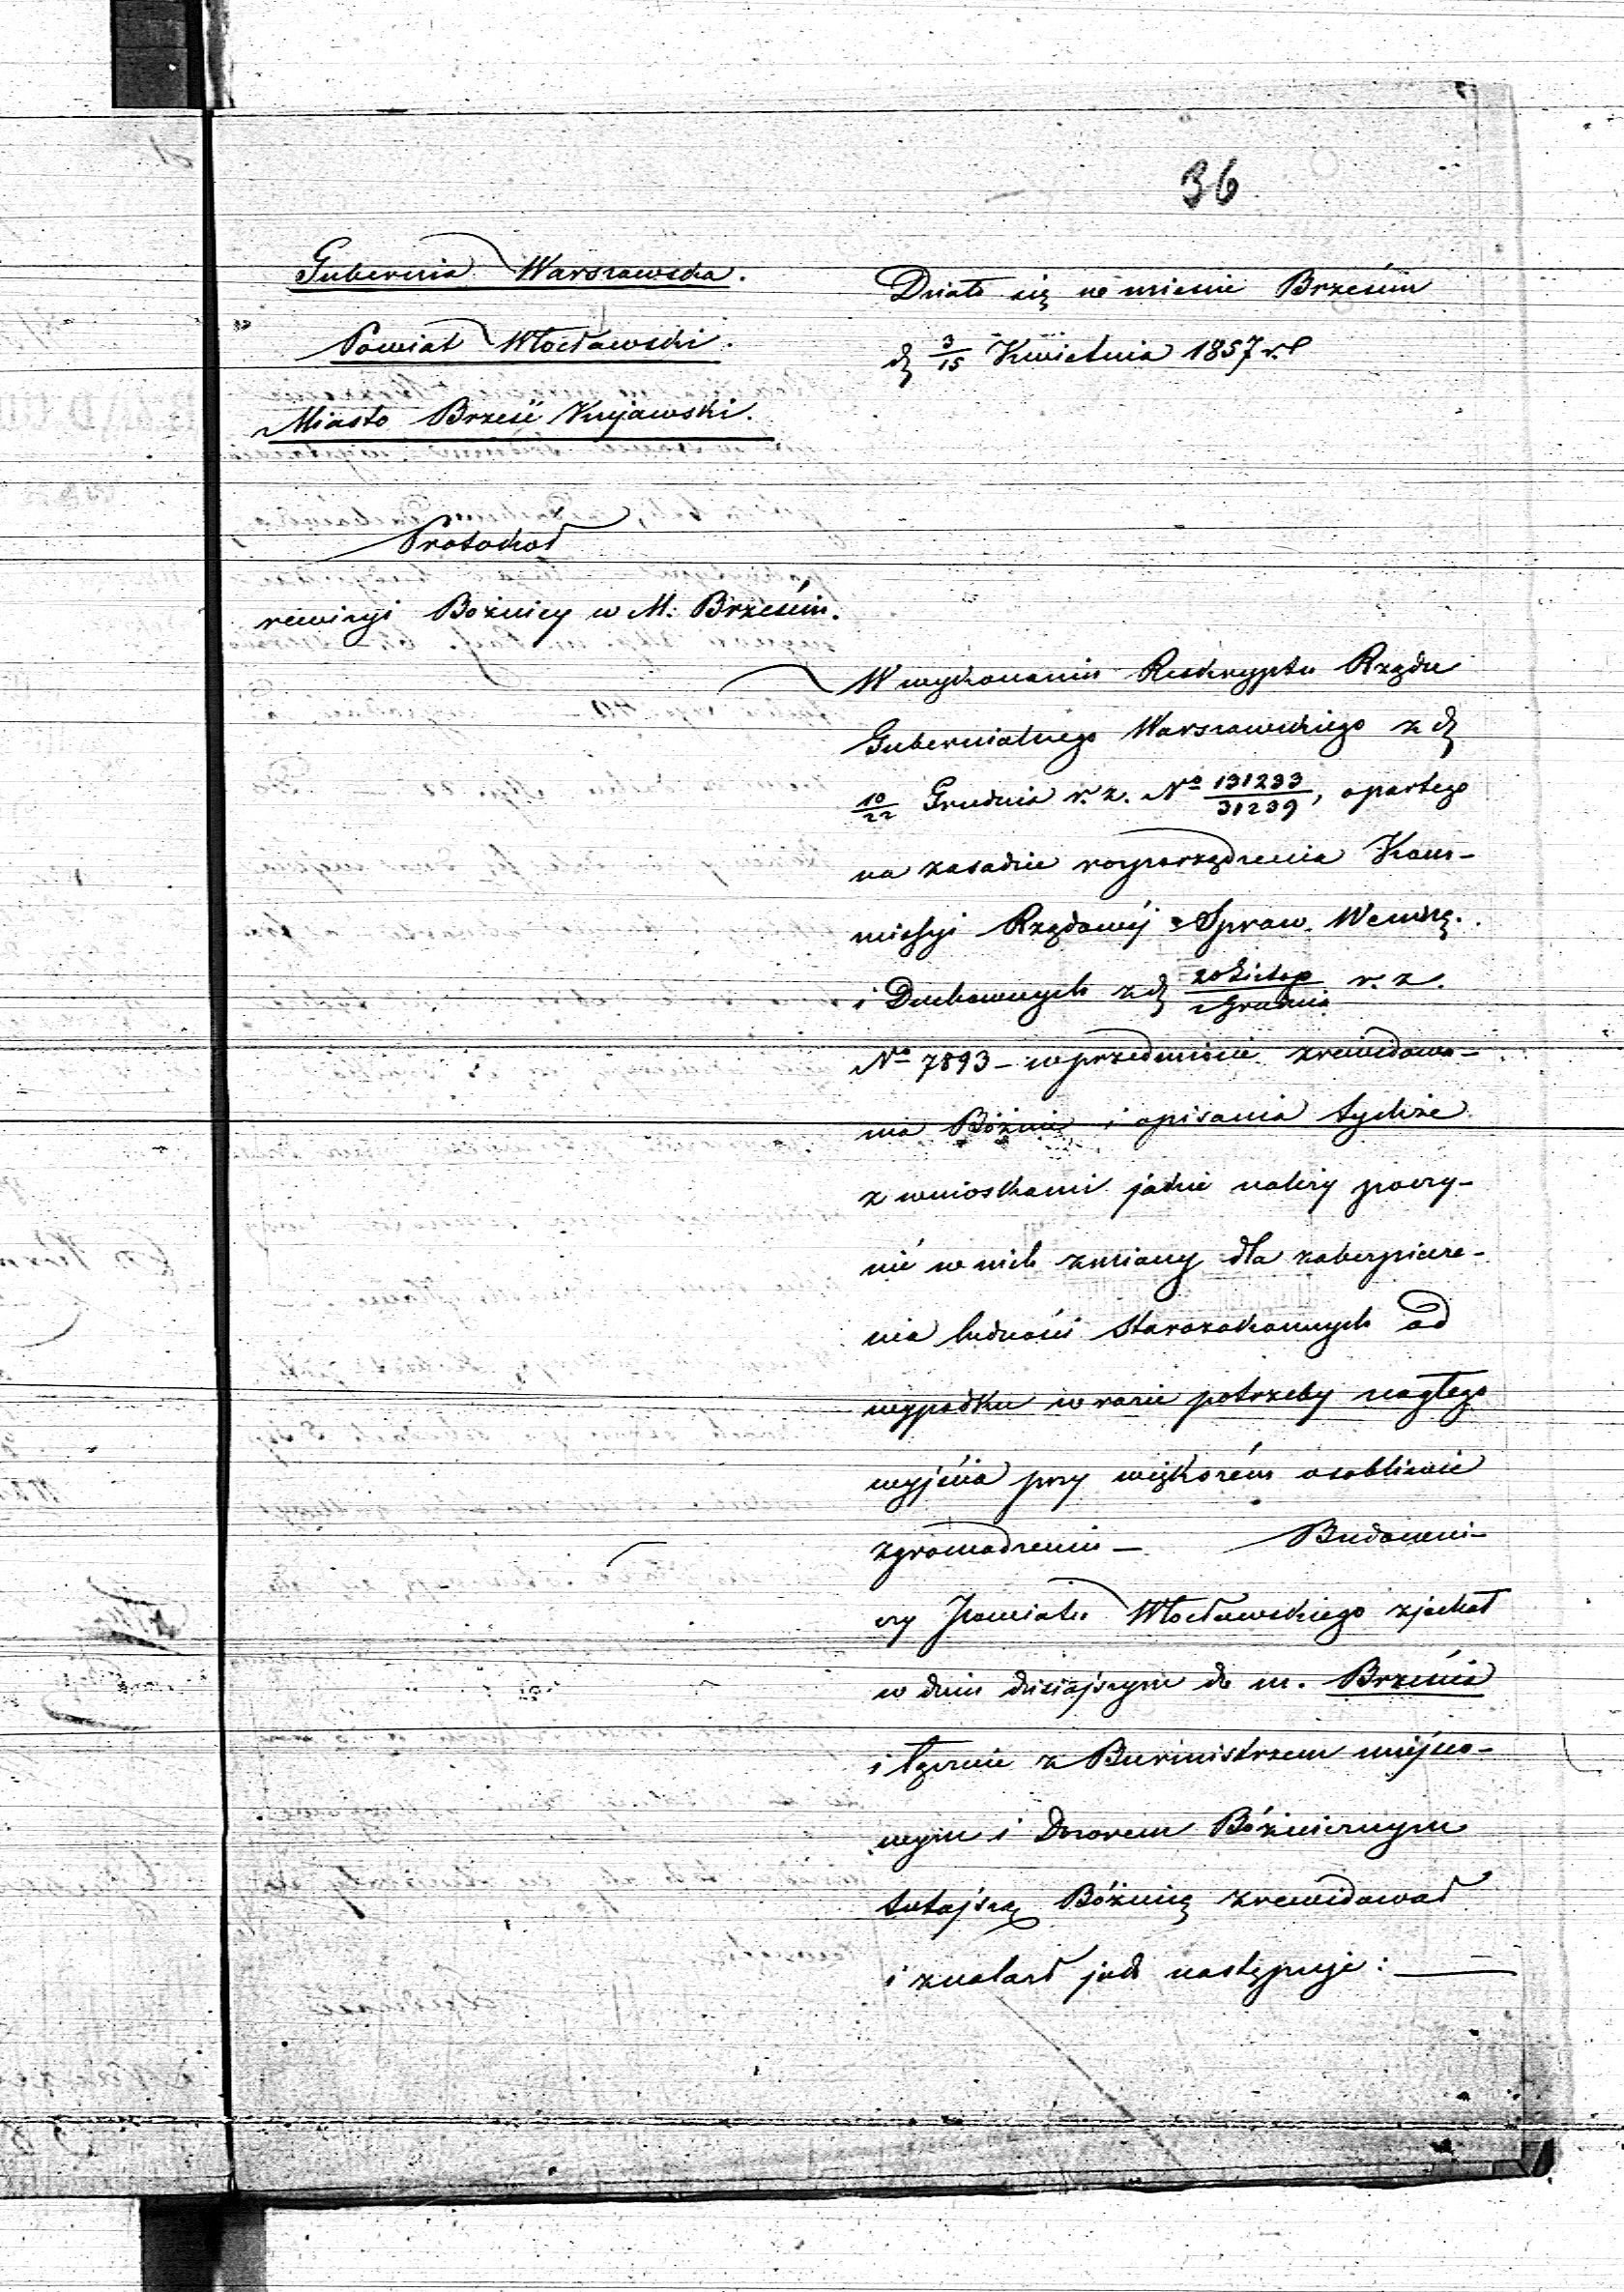 36
Gubernia Warszawska.
Powiat Włocławski.
Miasto Brześć Kujawski.
Protokoł
rewizyi Bożnicy w M: Brześciu.
Działo się w mieście Brześciu
d 3/15 Kwietnia 1857 r.
W wykonaniu Reskryptu Rządu
Gubernialnego Warszawskiego z d
10/22 Grudnia r. z. No 131233/31239, opartego
na zasadzie rozporządzenia Kom-
missyi Rządowéj Spraw Wewnę.
i Duchownych z d 20 Listop/2 Grudnia r. z.
No 7893 - w przedmiocie zrewidowa-
nia Bóżnic i opisania tychże
z wnioskami jakie należy poczy-
nić w nich zmiany dla zabezpiecze-
nia ludności Starozakonnych od
wypadku w razie potrzeby nagłego
wyjścia przy większém osobliwie
zgromadzeniu - Budowni-
czy Powiatu Włocławskiego zjechał
w dniu dzisiajszym do m. Brześcia
i łącznie z Burmistrzem miejsco-
wym i Dozorem Bóżnicznym
tutajszą Bóżnicę zrewidował
i znalazł jak następuje: